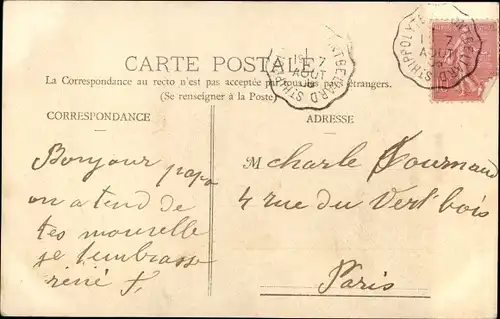 CARTE POSTALE
La Correspondance au recto n'est pas acceptée par tous les pays étrangers.
(Se renseigner à la Poste)
CORRESPONDANCE
ADRESSE
Bonjour papa
on a tend de
tes nouvelle
je tembrasse
réné F.
M charle Fournaud
4 rue du Vert bois
Paris
AOUT
MONTBELIARD ST HIPPOLYTE
AOUT